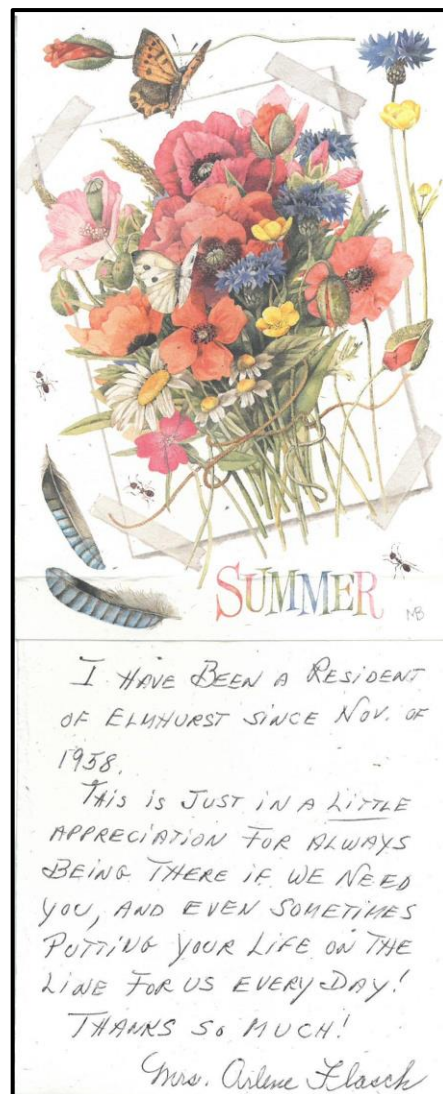 SUMMER
MB
I HAVE BEEN A RESIDENT
OF ELMHURST SINCE NOV. OF
1958.
THIS IS JUST IN A LITTLE
APPRECIATION FOR ALWAYS
BEING THERE IF WE NEED
YOU, AND EVEN SOMETIMES
PUTTING YOUR LIFE ON THE
LINE FOR US EVERY DAY!
THANKS SO MUCH!
Mrs. Arlene Flasch